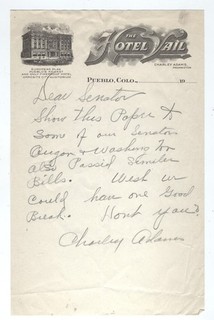 THE
HOTEL VAIL
CHARLES ADAMS,
PUEBLO, COLO., 19
Dear Senator
Show this Paper to
Som of our Senators
Oregon & Washington
also Passid Similer
Bills. Wish we
Could have one Good
Break. Wont you?
Charley Adams